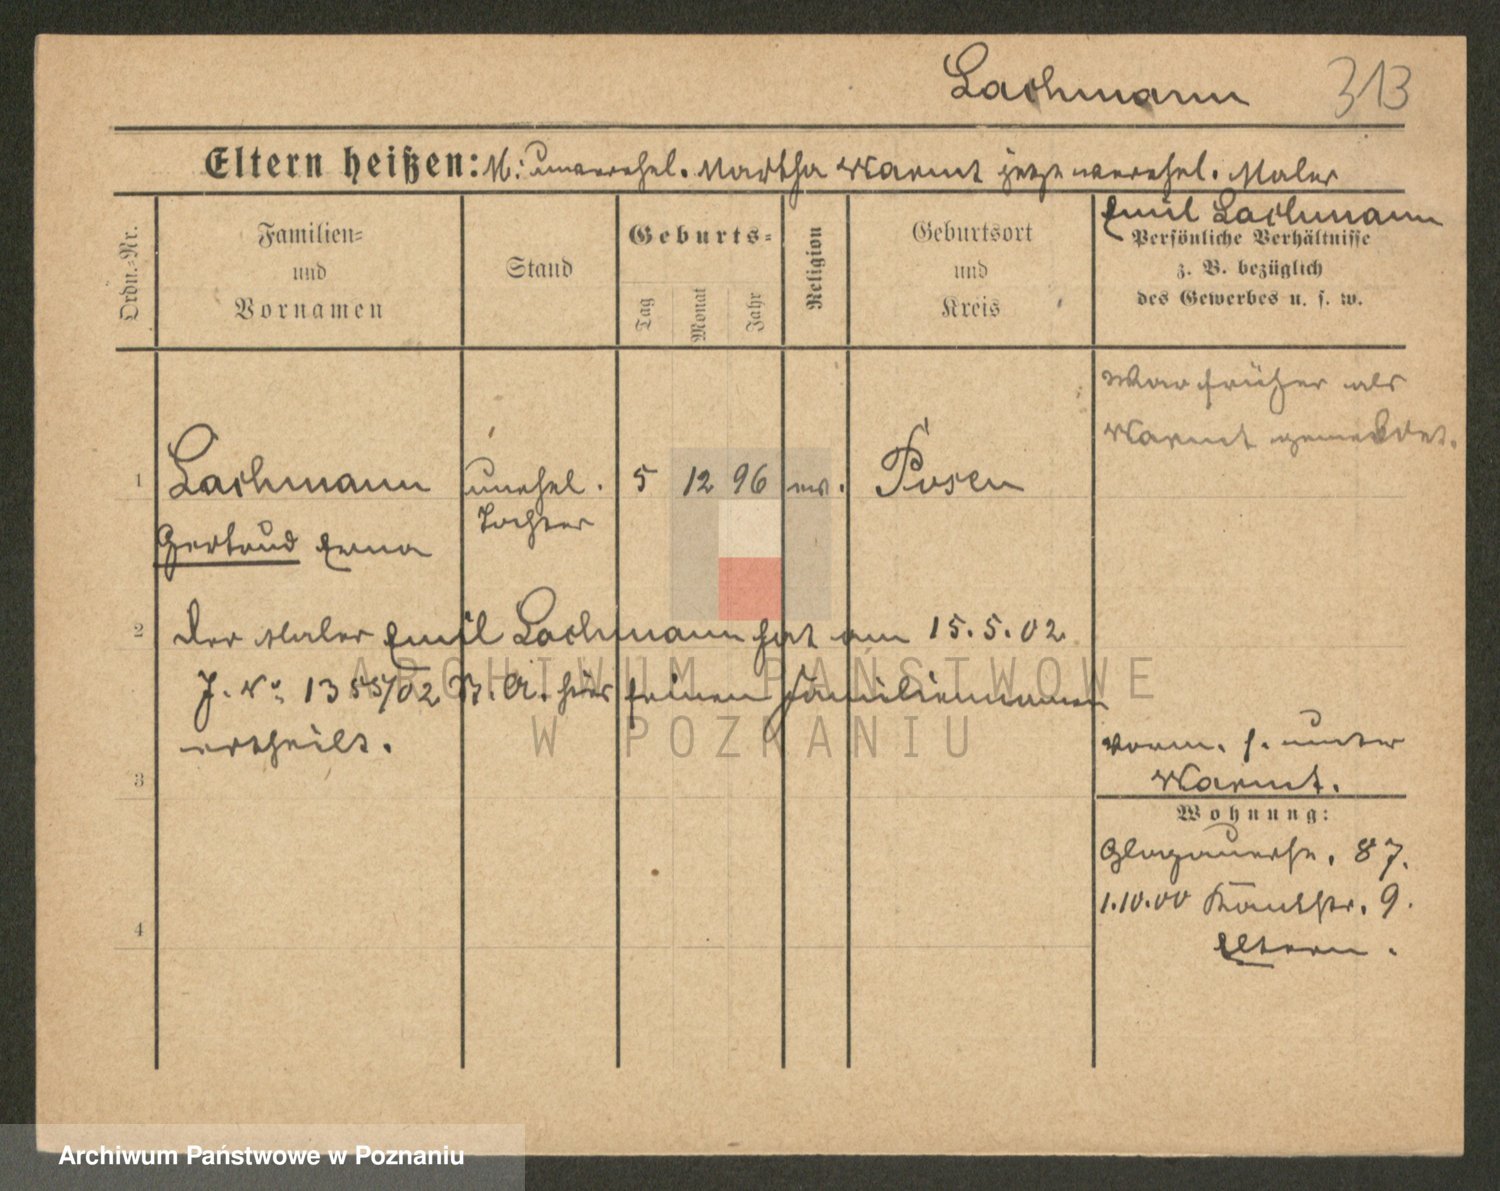 Lachmann
313
Eltern heißen: M: unverehel. Martha Warmt jetzt verehel. Maler
Emil Lachmann
Ordn.-Nr.
Familien-
und
Vornamen
Stand
Geburts-
Tag
Monat
Jahr
Religion
Geburtsort
und
Kreis
Persönliche Verhältnisse
z. B. bezüglich
des Gewerbes u. s. w.
War früher als
Warmt gemeldet.
1 Lachmann unehel. 5 12 96 ev. Posen
Gertrud Erna Tochter
2 Der Maler Emil Lachmann hat am 15.5.02
J. No 1355/02 hier seinen Familiennamen
ertheilt.
3
vorm. s. unter
Warmt.
Wohnung:
Glogauerstr. 87.
1.10.00 9.
4
Eltern.
ARCHIWUM PAŃSTWOWE
W POZNANIU
Archiwum Państwowe w Poznaniu